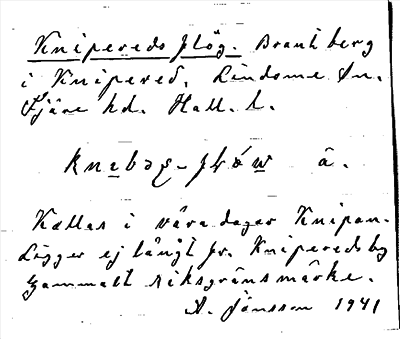 Knipereds flög. Brant berg
i Knipered, Lindome sn.
Fjäre hd. Hall. l.
â.
Kallas i våra dagar Knipan.
Ligger ej långt fr. Knipereds by
Gammalt Riksgränsmärke.
A. Jönsson 1941